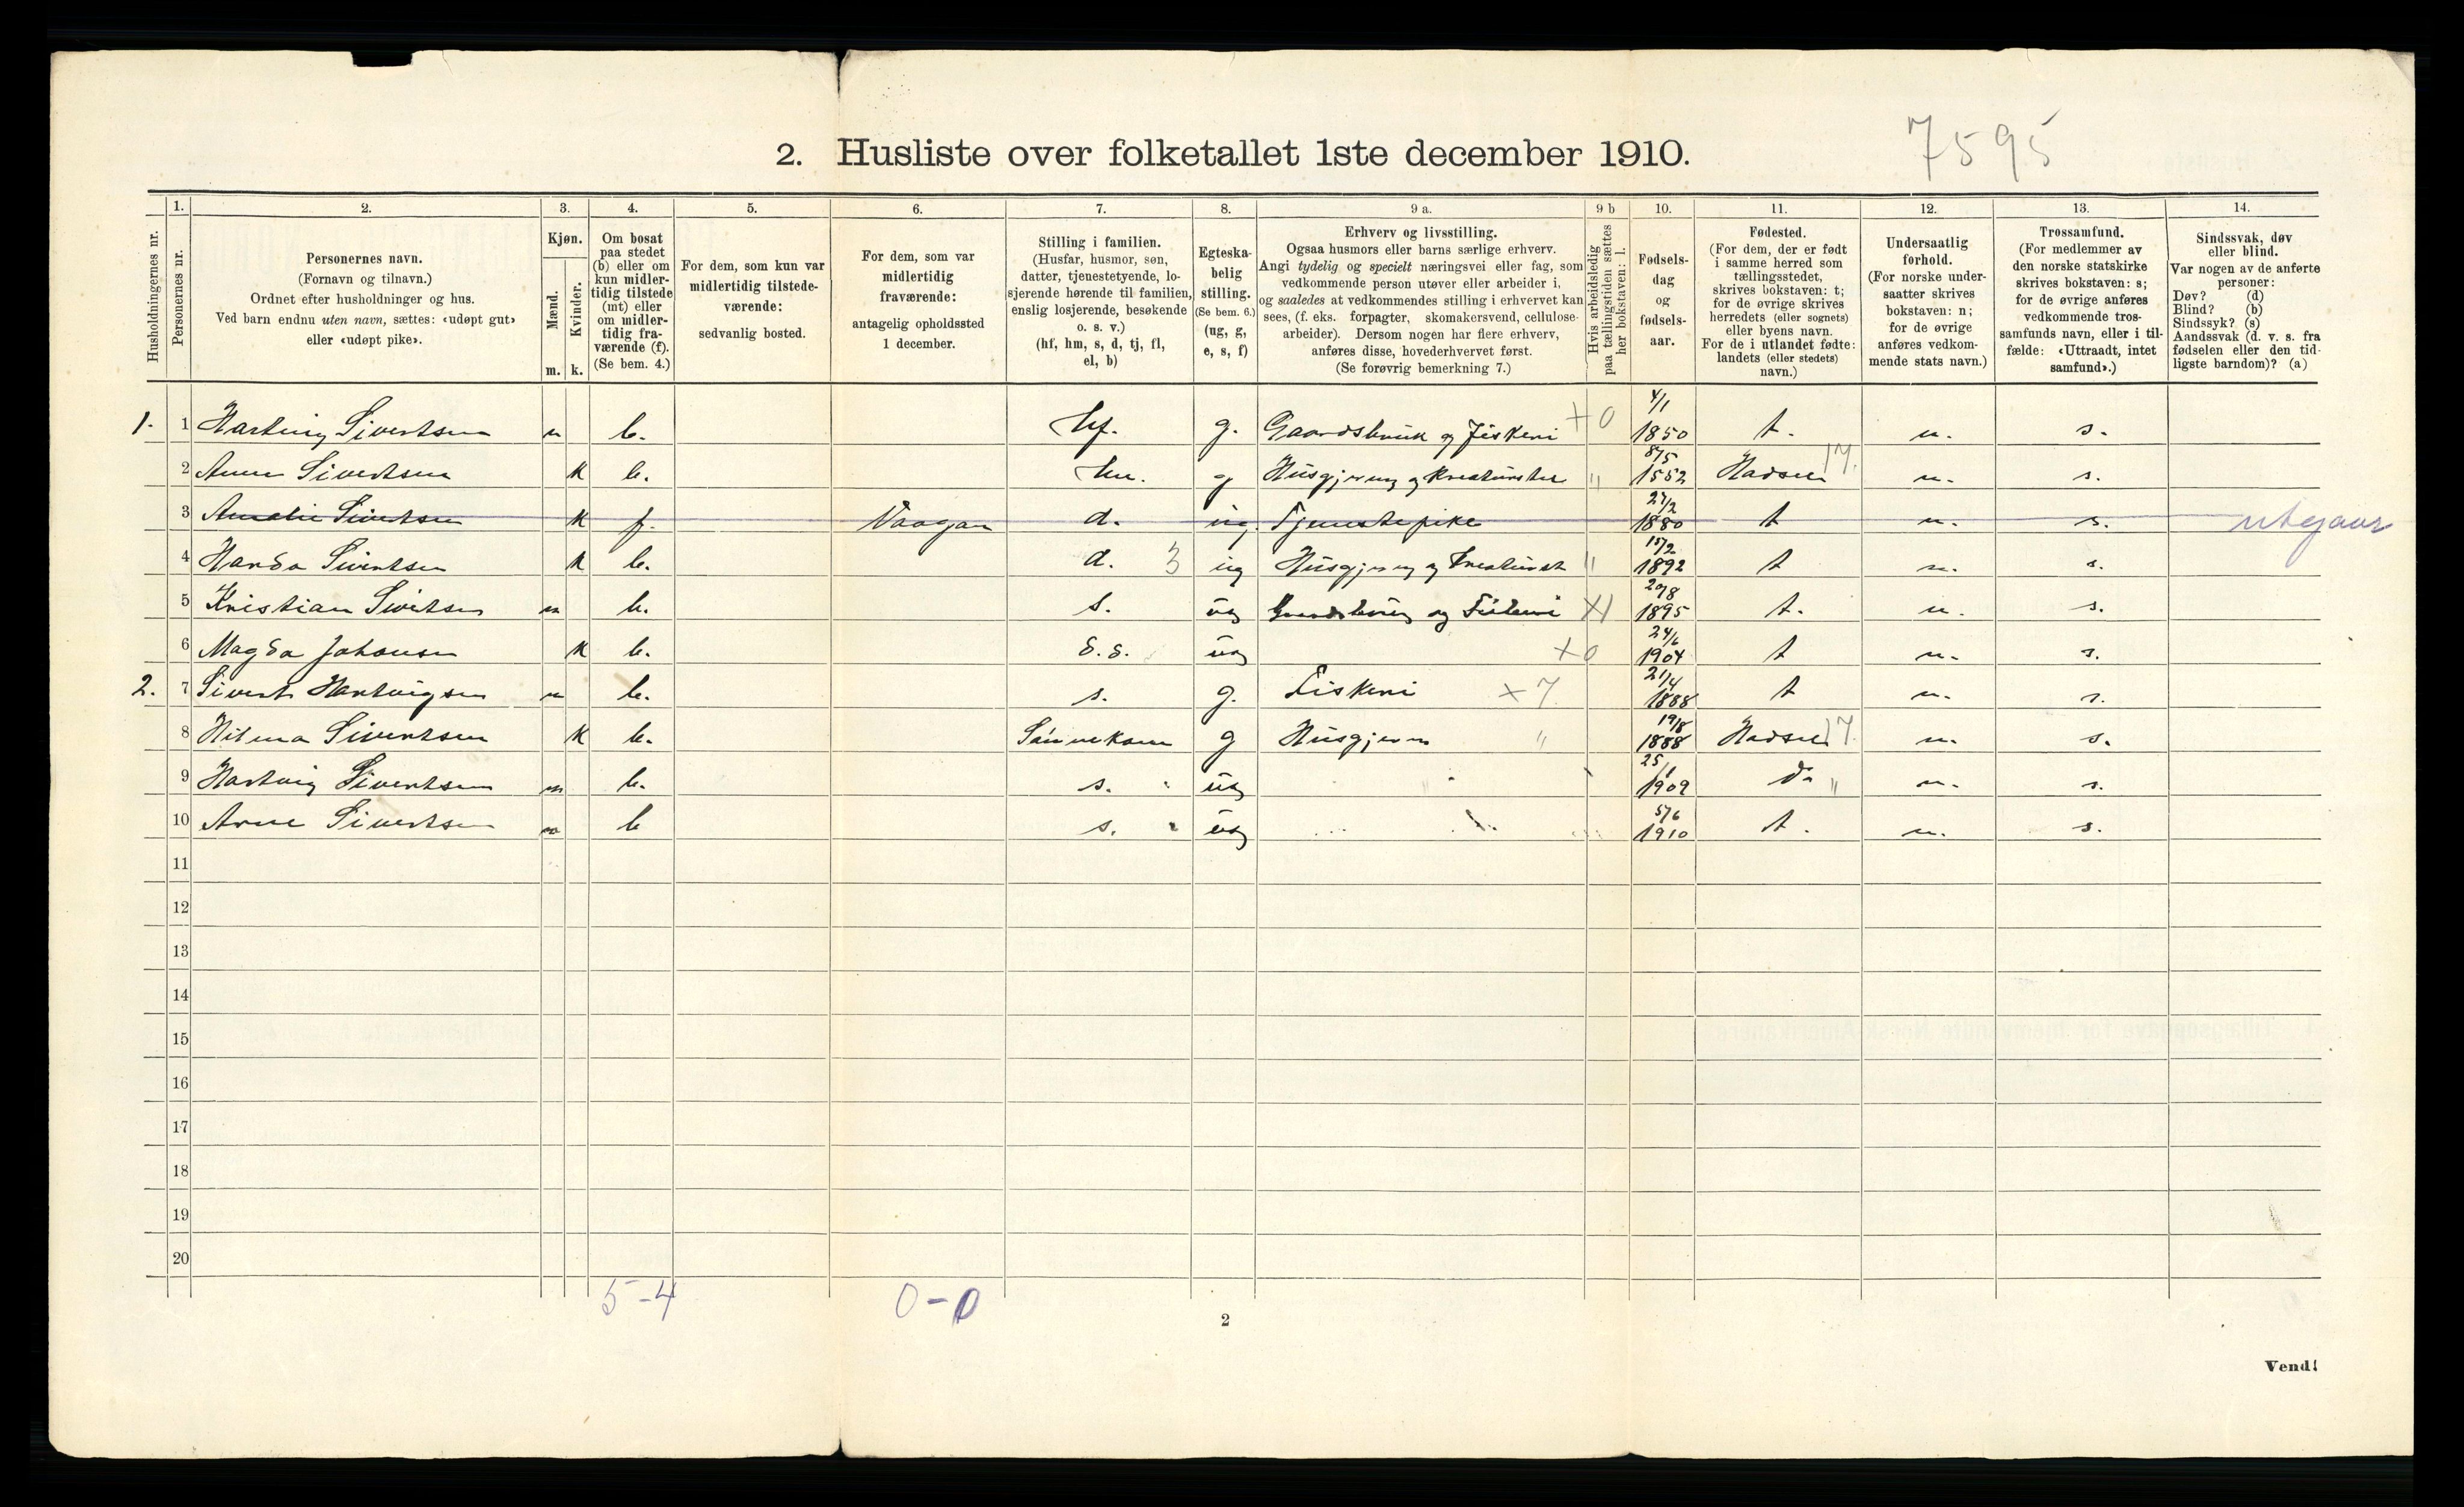 2. Husliste over folketallet 1ste december 1910.
7595
Husholdningernes nr.
1.
Personernes nr.
2.
Personernes navn.
(Fornavn og tilnavn.)
Ordnet efter husholdninger og hus.
Ved barn endnu uten navn, sættes: «udøpt gut»
eller «udøpt pike».
3.
Kjøn.
Mænd.
Kvinder.
m. k.
4.
Om bosat
paa stedet
(b) eller om
kun midler-
tidig tilstede
(mt) eller
om midler-
tidig fra-
værende (f).
(Se bem. 4.)
5.
For dem, som kun var
midlertidig tilstede-
værende:
sedvanlig bosted.
6.
For dem, som var
midlertidig
fraværende:
antagelig opholdssted
1 december.
7.
Stilling i familien.
(Husfar, husmor, søn,
datter, tjenestetyende, lo-
sjerende hørende til familien,
enslig losjerende, besøkende
o. s. v.)
(hf, hm, s, d, tj, fl,
el, b)
8.
Egteska-
belig
stilling.
(Se bem. 6.)
(ug, g,
e, s, f)
9 a.
Erhverv og livsstilling.
Ogsaa husmors eller barns særlige erhverv.
Angi tydelig og specielt næringsvei eller fag, som
vedkommende person utøver eller arbeider i,
og saaledes at vedkommendes stilling i erhvervet kan
sees, (f. eks. forpagter, skomakersvend, cellulose-
arbeider). Dersom nogen har flere erhverv,
anføres disse, hovederhvervet først.
(Se forøvrig bemerkning 7.)
9 b
Hvis arbeidsledig
paa tællingstiden sættes
her bokstaven: l.
10.
Fødsels-
dag
og
fødsels-
aar.
11.
Fødested.
(For dem, der er født
i samme herred som
tællingsstedet,
skrives bokstaven: t;
for de øvrige skrives
herredets (eller sognets)
eller byens navn.
For de i utlandet fødte:
landets (eller stedets)
navn.)
12.
Undersaatlig
forhold.
(For norske under-
saatter skrives
bokstaven: n;
for de øvrige
anføres vedkom-
mende stats navn.)
13.
Trossamfund.
(For medlemmer av
den norske statskirke
skrives bokstaven: s;
for de øvrige anføres
vedkommende tros-
samfunds navn, eller i til-
fælde: «Uttraadt, intet
samfund».)
14.
Sindssvak, døv
eller blind.
Var nogen av de anførte
personer:
Døv? (d)
Blind? (b)
Sindssyk? (s)
Aandssvak (d. v. s. fra
fødselen eller den tid-
ligste barndom)? (a)
1. 1 Hartvig Sivertsen m b. hf. g. Gaardsbruk og Fiskeri +0 4/1 1850 t. n. s.
2 Anne Sivertsen k b. hm. g Husgjerning og Kreaturstel " 8/5 1852 Hadsel 17. n. s.
3 Amalie Sivertsen k f. Vaagan d. ug. Tjenestepike 27/2 1880 t n. s. utgaar
4 Handa Sivertsen k b. d. 3 ug Husgjerning og Kreaturst " 15/2 1892 t n. s.
5 Kristian Sivertsen m b. s. ug Gaardsbrug og Fiskeri X1 20/8 1895 t. n. s.
6 Magda Johansen k b. d.d. ug +0 24/6 1904 t n. s.
2. 7 Sivert Hartvigsen m b. s. g. Fiskeri x7 21/4 1888 t n. s.
8 Hilma Sivertsen k b. Sønnekone g Husgjern " 19/8 1888 Hadsel 17. n. s.
9 Hartvig Sivertsen m b. s. ug " 25/1 1909 do " n. s.
10 Arne Sivertsen m b s. ug 5/6 1910 t. n. s.
11
12
13
14
15
16
17
18
19
20
5-4 0-0
2
Vend!